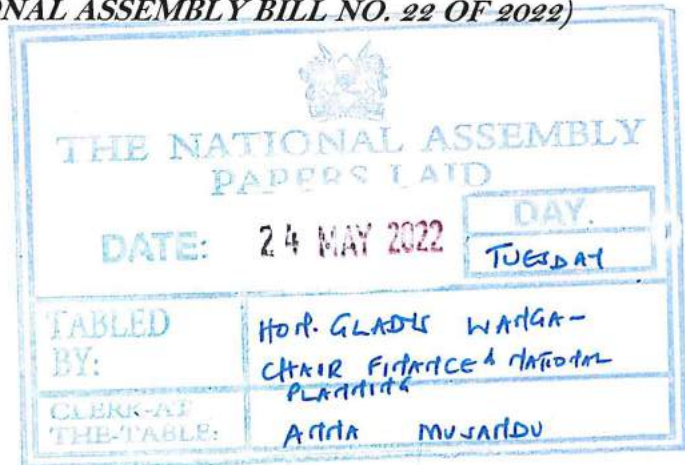 ONAL ASSEMBLY BILL NO. 22 OF 2022)
THE NATIONAL ASSEMBLY
PAPERS LAID
DATE: 24 MAY 2022
DAY.
TUESDAY
TABLED
BY:
HON. GLADYS WANGA-
CHAIR FINANCE & NATIONAL
PLANNING
CLERK-AT
THE-TABLE:
ANNA MUSANDU